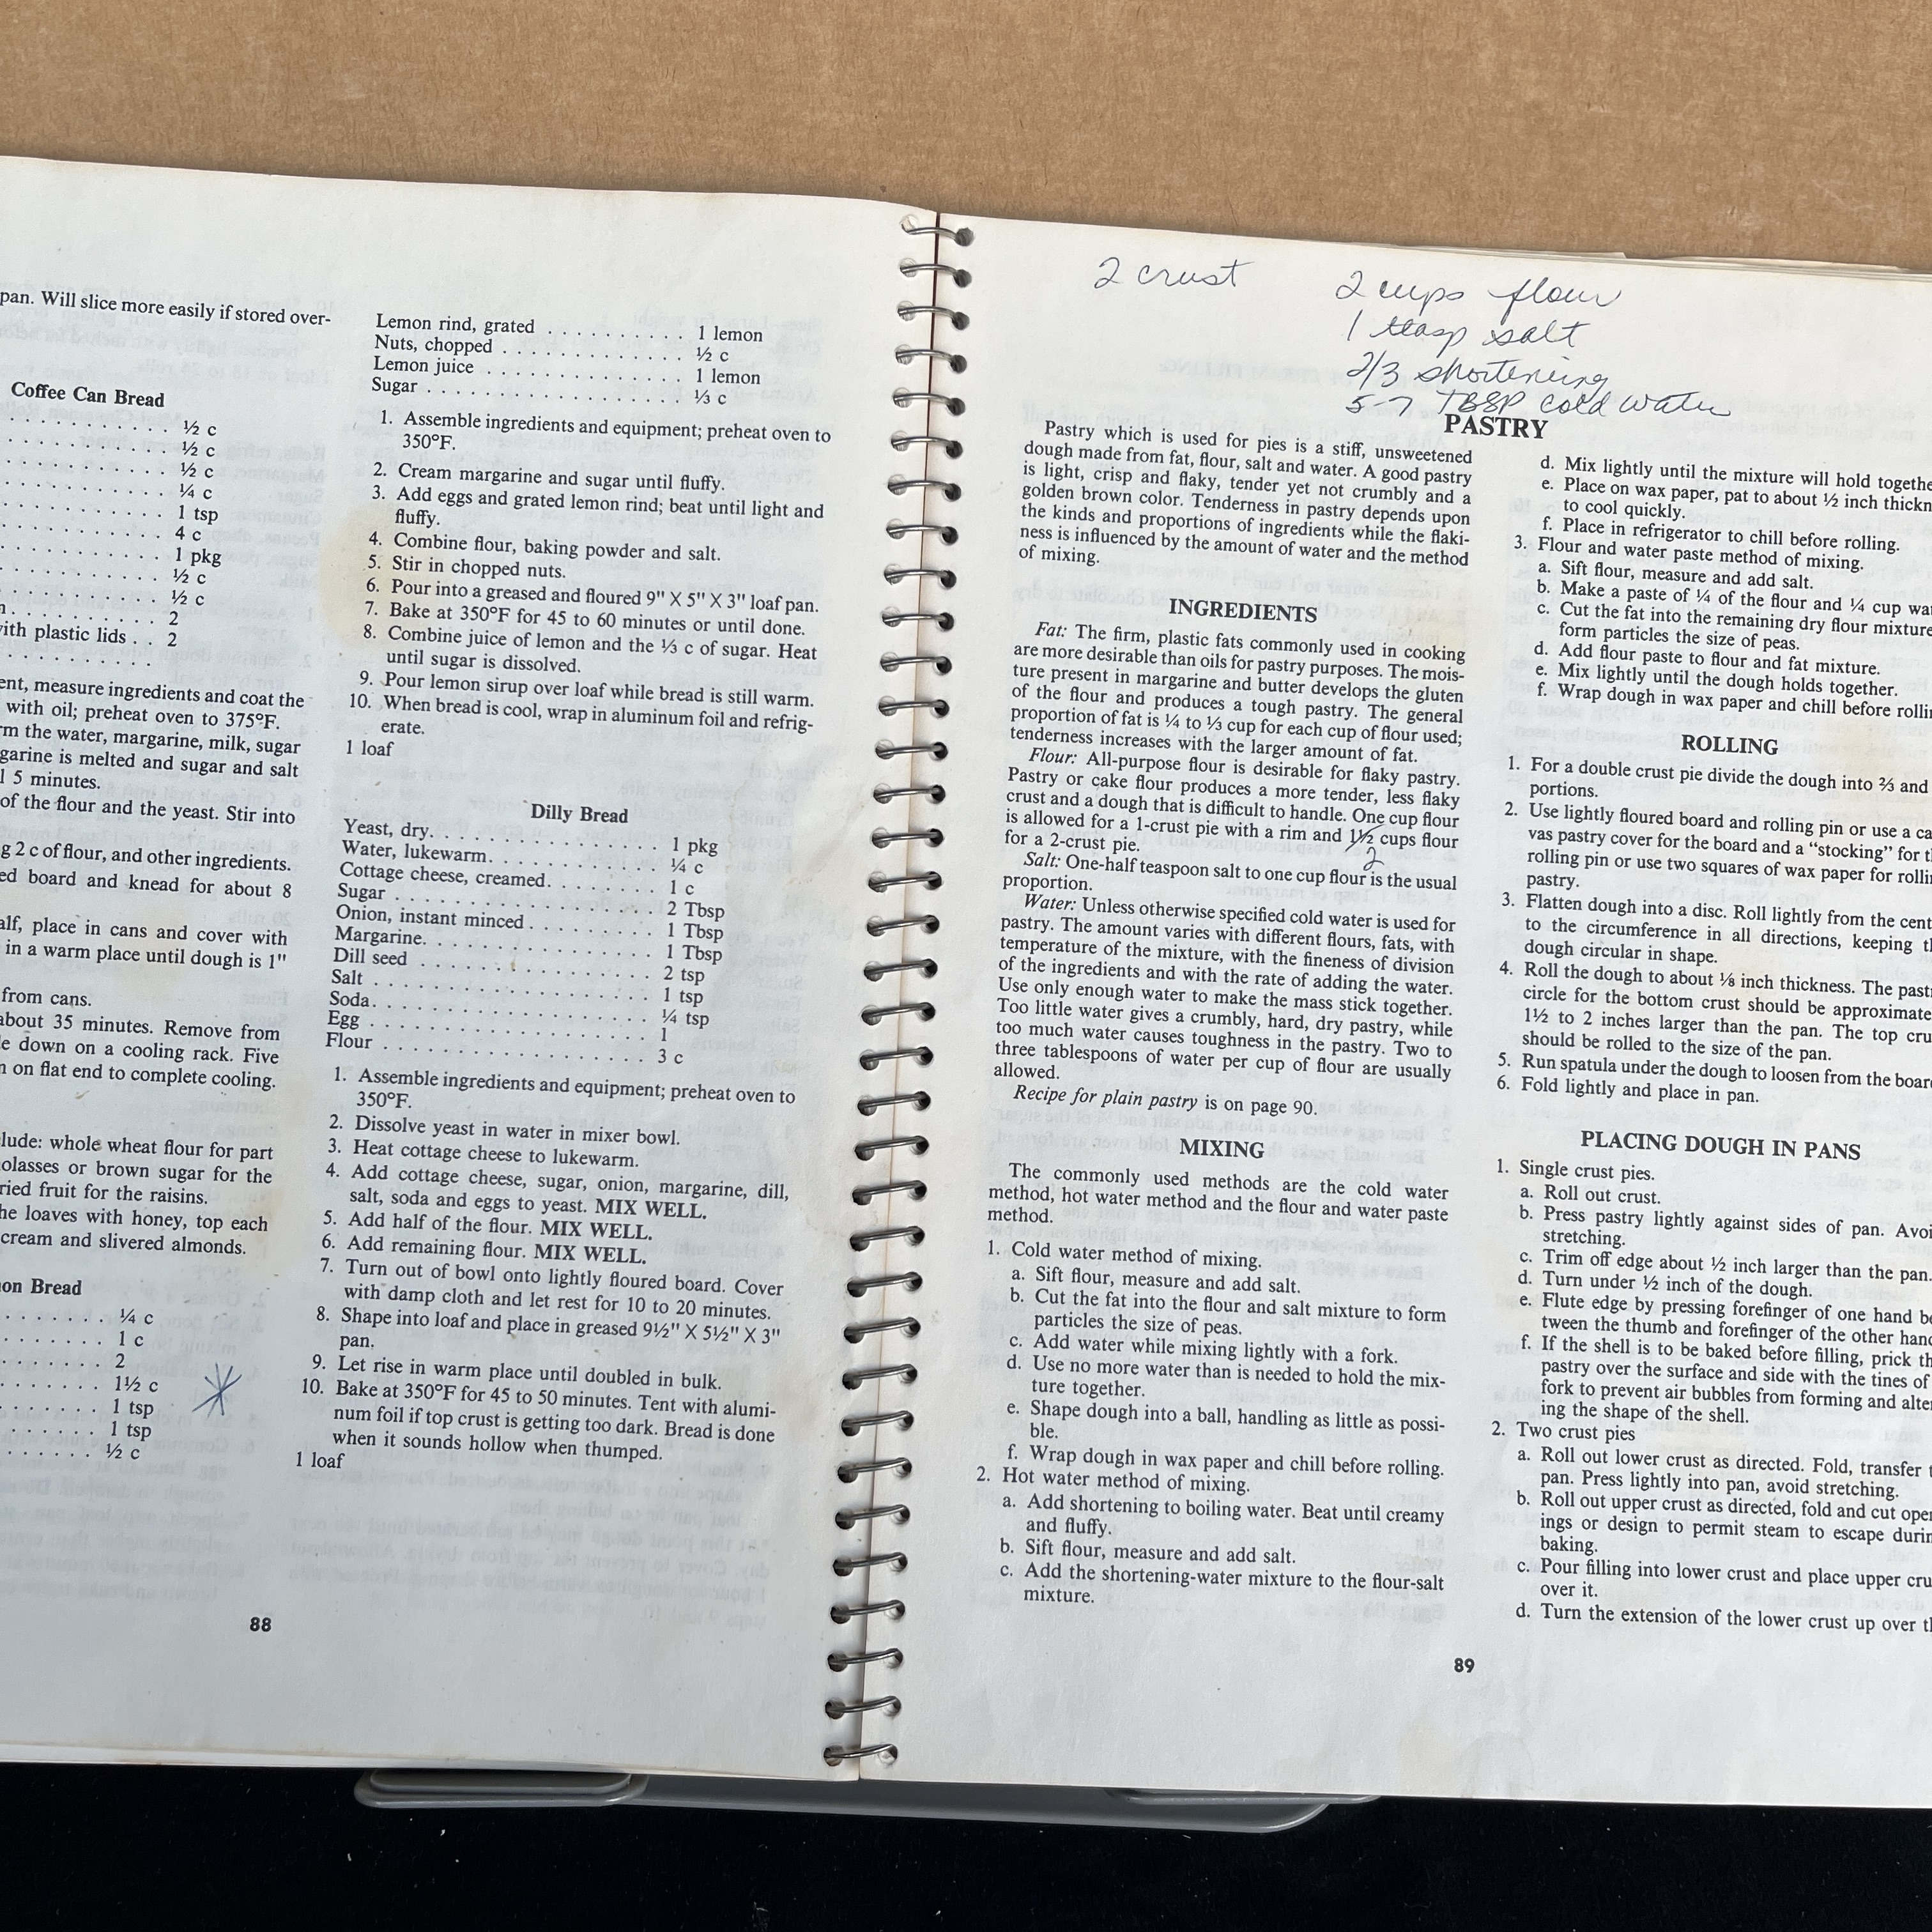 pan. Will slice more easily if stored over-
Coffee Can Bread
. . . . . . . . . . ½ c
. . . . . . . . . . ½ c
. . . . . . . . . . ½ c
. . . . . . . . . . ¼ c
. . . . . . . . . . 1 tsp
. . . . . . . . . . 4 c
. . . . . . . . . . 1 pkg
. . . . . . . . . . ½ c
. . . . . . . . . . ½ c
. . . . . . . . . . 2
with plastic lids . . 2
ent, measure ingredients and coat the
with oil; preheat oven to 375°F.
rm the water, margarine, milk, sugar
garine is melted and sugar and salt
l 5 minutes.
of the flour and the yeast. Stir into
g 2 c of flour, and other ingredients.
ed board and knead for about 8
alf, place in cans and cover with
in a warm place until dough is 1"
from cans.
about 35 minutes. Remove from
e down on a cooling rack. Five
n on flat end to complete cooling.
lude: whole wheat flour for part
olasses or brown sugar for the
ried fruit for the raisins.
he loaves with honey, top each
cream and slivered almonds.
on Bread
. . . . . . . ¼ c
. . . . . . . 1 c
. . . . . . . 2
. . . . . . . 1½ c
. . . . . . . 1 tsp
. . . . . . . 1 tsp
. . . . . . . ½ c
88
Lemon rind, grated . . . . . . . . . 1 lemon
Nuts, chopped . . . . . . . . . . . . ½ c
Lemon juice . . . . . . . . . . . . . 1 lemon
Sugar . . . . . . . . . . . . . . . . ⅓ c
1. Assemble ingredients and equipment; preheat oven to
350°F.
2. Cream margarine and sugar until fluffy.
3. Add eggs and grated lemon rind; beat until light and
fluffy.
4. Combine flour, baking powder and salt.
5. Stir in chopped nuts.
6. Pour into a greased and floured 9" X 5" X 3" loaf pan.
7. Bake at 350°F for 45 to 60 minutes or until done.
8. Combine juice of lemon and the ⅓ c of sugar. Heat
until sugar is dissolved.
9. Pour lemon sirup over loaf while bread is still warm.
10. When bread is cool, wrap in aluminum foil and refrig-
erate.
1 loaf
Dilly Bread
Yeast, dry. . . . . . . . . . . . . . 1 pkg
Water, lukewarm. . . . . . . . . . . ¼ c
Cottage cheese, creamed. . . . . . . . 1 c
Sugar . . . . . . . . . . . . . . . . 2 Tbsp
Onion, instant minced . . . . . . . . . 1 Tbsp
Margarine. . . . . . . . . . . . . . . 1 Tbsp
Dill seed . . . . . . . . . . . . . . . 2 tsp
Salt . . . . . . . . . . . . . . . . . 1 tsp
Soda. . . . . . . . . . . . . . . . . ¼ tsp
Egg . . . . . . . . . . . . . . . . . 1
Flour . . . . . . . . . . . . . . . . 3 c
1. Assemble ingredients and equipment; preheat oven to
350°F.
2. Dissolve yeast in water in mixer bowl.
3. Heat cottage cheese to lukewarm.
4. Add cottage cheese, sugar, onion, margarine, dill,
salt, soda and eggs to yeast. MIX WELL.
5. Add half of the flour. MIX WELL.
6. Add remaining flour. MIX WELL.
7. Turn out of bowl onto lightly floured board. Cover
with damp cloth and let rest for 10 to 20 minutes.
8. Shape into loaf and place in greased 9½" X 5½" X 3"
pan.
9. Let rise in warm place until doubled in bulk.
10. Bake at 350°F for 45 to 50 minutes. Tent with alumi-
num foil if top crust is getting too dark. Bread is done
when it sounds hollow when thumped.
1 loaf
2 crust
2 cups flour
1 teasp salt
2/3 shortening
5-7 TBSP cold water
PASTRY
Pastry which is used for pies is a stiff, unsweetened
dough made from fat, flour, salt and water. A good pastry
is light, crisp and flaky, tender yet not crumbly and a
golden brown color. Tenderness in pastry depends upon
the kinds and proportions of ingredients while the flaki-
ness is influenced by the amount of water and the method
of mixing.
INGREDIENTS
Fat: The firm, plastic fats commonly used in cooking
are more desirable than oils for pastry purposes. The mois-
ture present in margarine and butter develops the gluten
of the flour and produces a tough pastry. The general
proportion of fat is ¼ to ⅓ cup for each cup of flour used;
tenderness increases with the larger amount of fat.
Flour: All-purpose flour is desirable for flaky pastry.
Pastry or cake flour produces a more tender, less flaky
crust and a dough that is difficult to handle. One cup flour
is allowed for a 1-crust pie with a rim and 1½ cups flour
for a 2-crust pie.
2
Salt: One-half teaspoon salt to one cup flour is the usual
proportion.
Water: Unless otherwise specified cold water is used for
pastry. The amount varies with different flours, fats, with
temperature of the mixture, with the fineness of division
of the ingredients and with the rate of adding the water.
Use only enough water to make the mass stick together.
Too little water gives a crumbly, hard, dry pastry, while
too much water causes toughness in the pastry. Two to
three tablespoons of water per cup of flour are usually
allowed.
Recipe for plain pastry is on page 90.
MIXING
The commonly used methods are the cold water
method, hot water method and the flour and water paste
method.
1. Cold water method of mixing.
a. Sift flour, measure and add salt.
b. Cut the fat into the flour and salt mixture to form
particles the size of peas.
c. Add water while mixing lightly with a fork.
d. Use no more water than is needed to hold the mix-
ture together.
e. Shape dough into a ball, handling as little as possi-
ble.
f. Wrap dough in wax paper and chill before rolling.
2. Hot water method of mixing.
a. Add shortening to boiling water. Beat until creamy
and fluffy.
b. Sift flour, measure and add salt.
c. Add the shortening-water mixture to the flour-salt
mixture.
d. Mix lightly until the mixture will hold togethe
e. Place on wax paper, pat to about ½ inch thickn
to cool quickly.
f. Place in refrigerator to chill before rolling.
3. Flour and water paste method of mixing.
a. Sift flour, measure and add salt.
b. Make a paste of ¼ of the flour and ¼ cup wa
c. Cut the fat into the remaining dry flour mixture
form particles the size of peas.
d. Add flour paste to flour and fat mixture.
e. Mix lightly until the dough holds together.
f. Wrap dough in wax paper and chill before rolli
ROLLING
1. For a double crust pie divide the dough into ⅔ and
portions.
2. Use lightly floured board and rolling pin or use a ca
vas pastry cover for the board and a “stocking” for t
rolling pin or use two squares of wax paper for rolli
pastry.
3. Flatten dough into a disc. Roll lightly from the cent
to the circumference in all directions, keeping t
dough circular in shape.
4. Roll the dough to about ⅛ inch thickness. The past
circle for the bottom crust should be approximate
1½ to 2 inches larger than the pan. The top cru
should be rolled to the size of the pan.
5. Run spatula under the dough to loosen from the boar
6. Fold lightly and place in pan.
PLACING DOUGH IN PANS
1. Single crust pies.
a. Roll out crust.
b. Press pastry lightly against sides of pan. Avoi
stretching.
c. Trim off edge about ½ inch larger than the pan.
d. Turn under ½ inch of the dough.
e. Flute edge by pressing forefinger of one hand be
tween the thumb and forefinger of the other hand
f. If the shell is to be baked before filling, prick th
pastry over the surface and side with the tines of
fork to prevent air bubbles from forming and alter
ing the shape of the shell.
2. Two crust pies
a. Roll out lower crust as directed. Fold, transfer t
pan. Press lightly into pan, avoid stretching.
b. Roll out upper crust as directed, fold and cut open
ings or design to permit steam to escape durin
baking.
c. Pour filling into lower crust and place upper cru
over it.
d. Turn the extension of the lower crust up over th
89